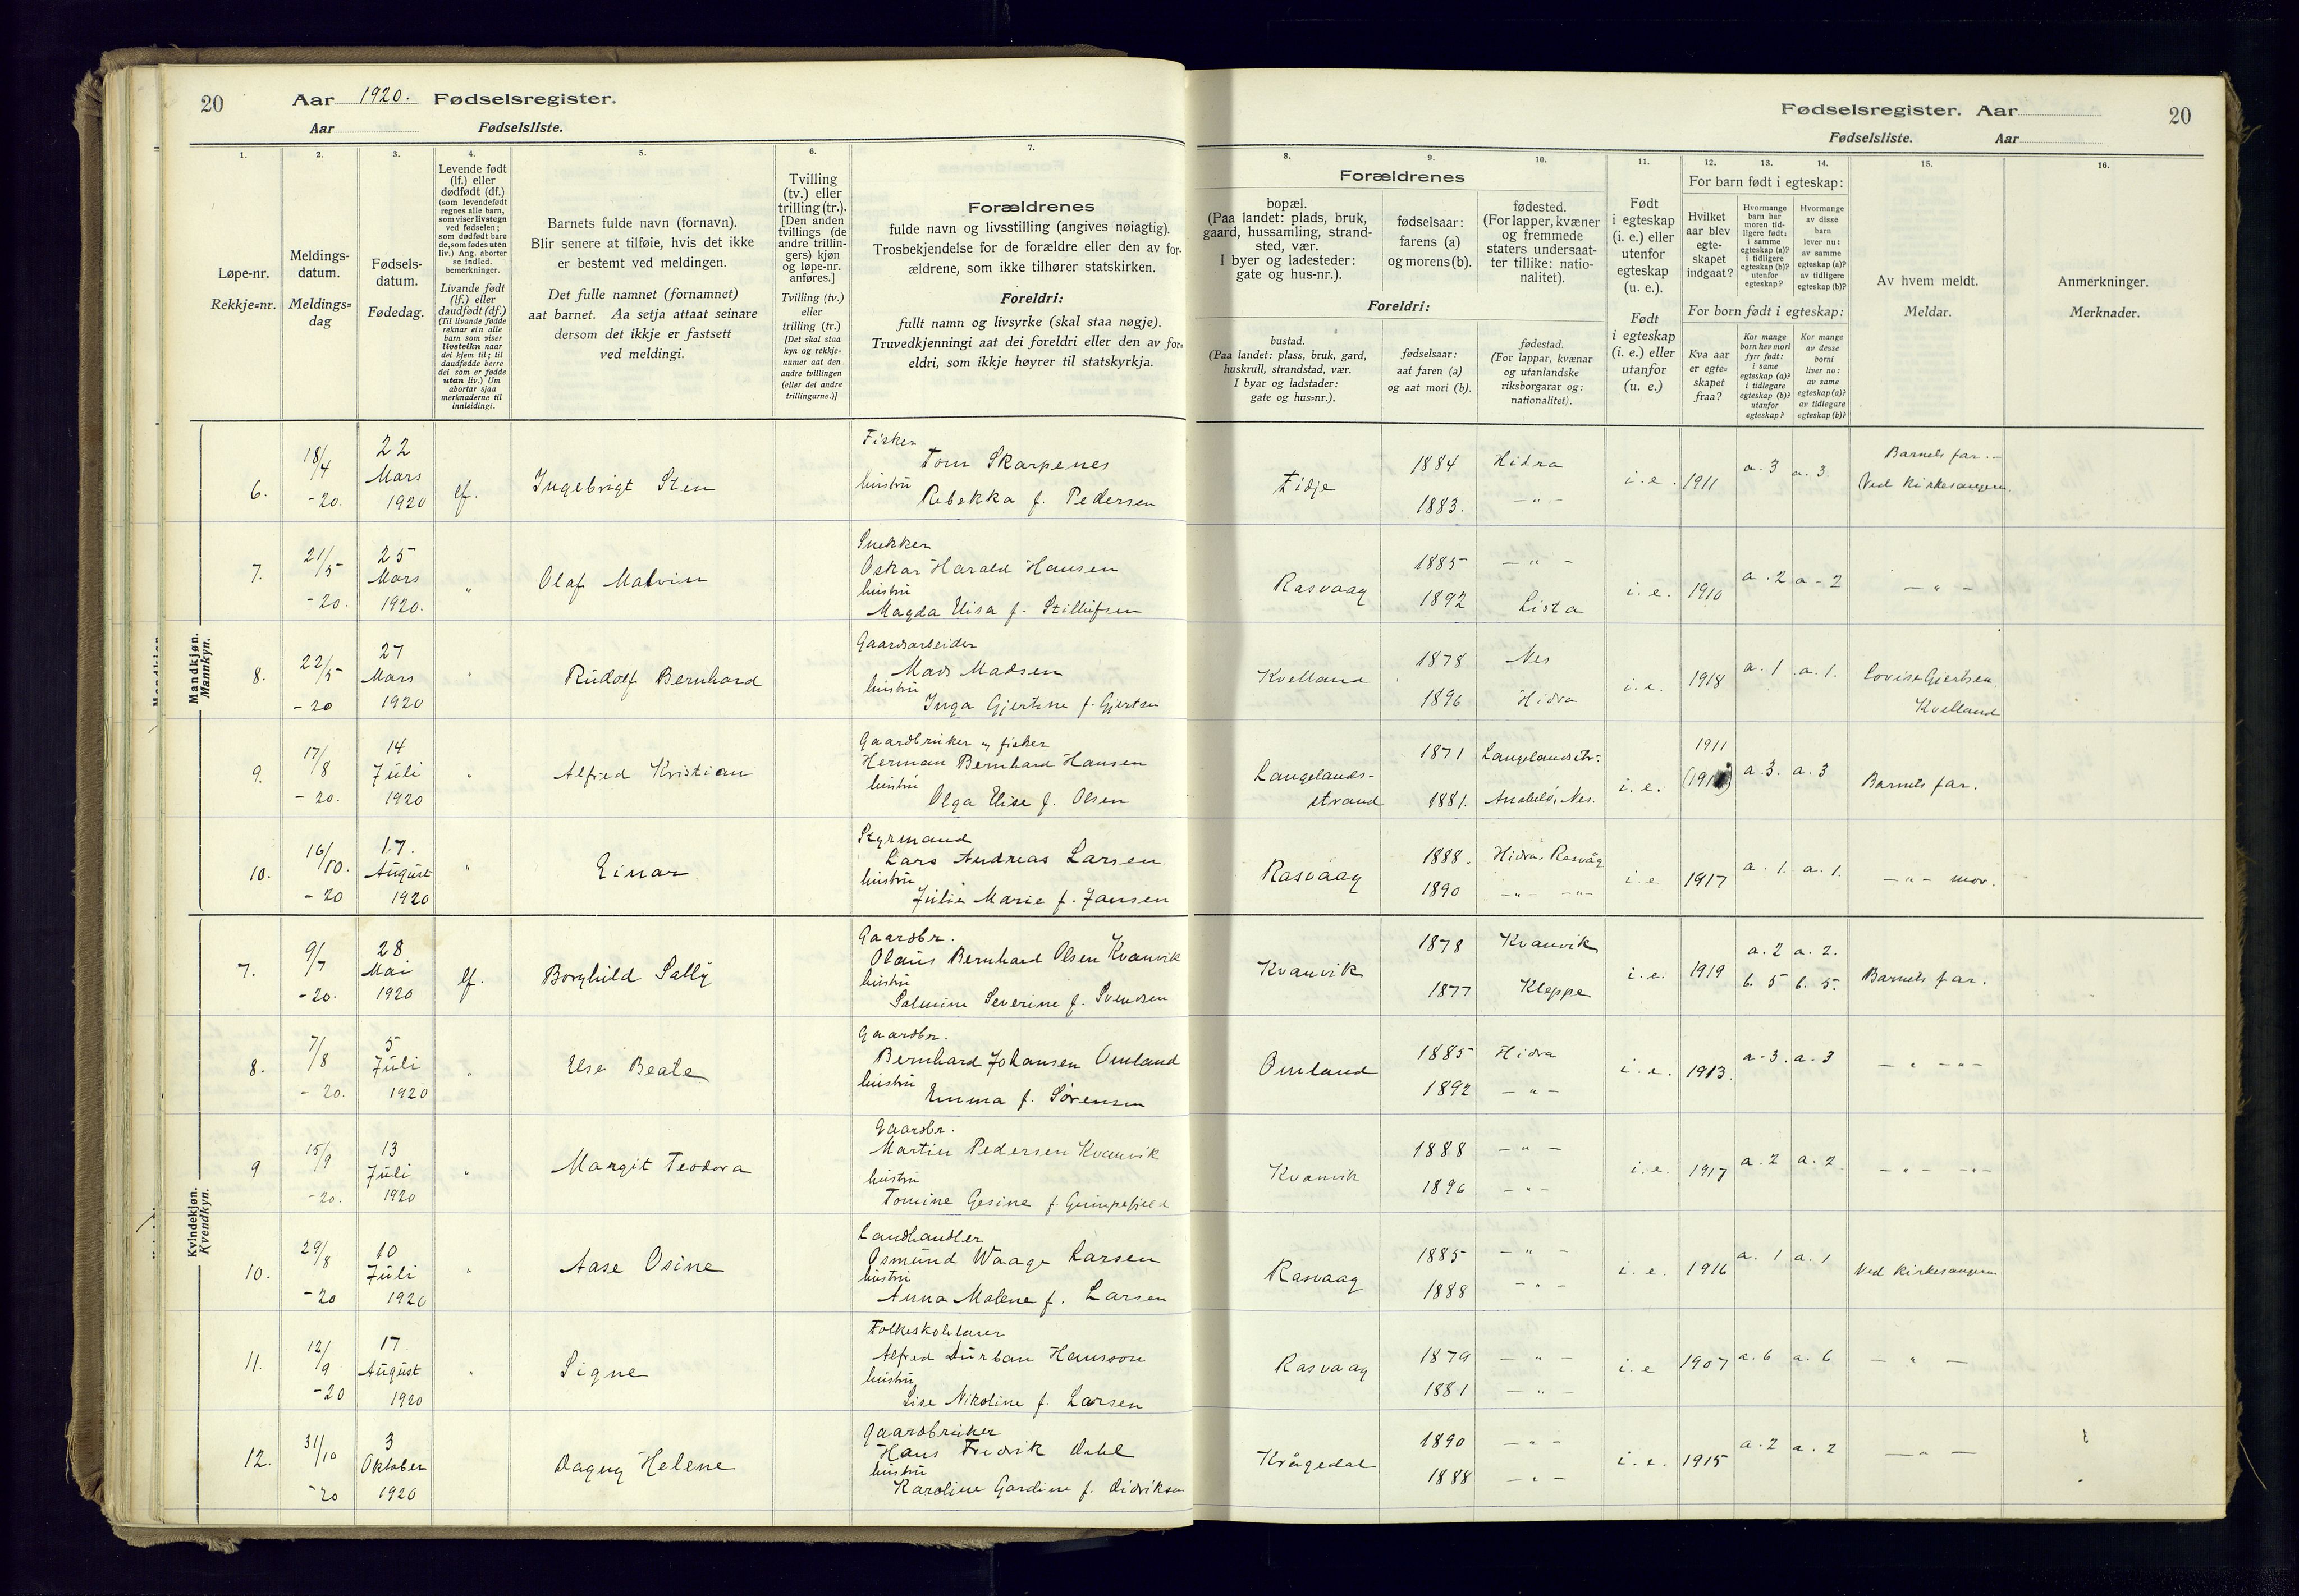 20
Aar 1920. Fødselsregister.
Aar Fødselsliste.
Fødselsregister. Aar
20
Fødselsliste. Aar
1.
Løpe-nr.
Rekkje=nr.
2.
Meldings-
datum.
Meldings=
dag
3.
Fødsels-
datum.
Fødedag.
4.
Levende født
(lf.) eller
dødfødt (df.)
(som levendefødt
regnes alle barn,
som viser livstegn
ved fødselen;
som dødfødt bare
de, som fødes uten
liv.) Ang. aborter
se indled.
bemerkninger.
Livande født
(lf.) eller
daudfødt (df.)
(Til livande fødde
reknar ein alle
barn som viser
livsteikn naar
dei kjem til; til
daudfødde berre
dei som er fødde
utan liv.) Um
abortar sjaa
merknaderne til
innleidingi.
5.
Barnets fulde navn (fornavn).
Blir senere at tilføie, hvis det ikke
er bestemt ved meldingen.
Det fulle namnet (fornamnet)
aat barnet. Aa setja attaat seinare
dersom det ikkje er fastsett
ved meldingi.
6.
Tvilling
(tv.) eller
trilling (tr.).
[Den anden
tvillings (de
andre trillin-
gers) kjøn
og løpe-nr.
anføres.]
Tvilling (tv.)
eller
trilling (tr.)
[Det skal staa
kyn og rekkje-
numer aat den
andre tvillingen
(eller dei andre
trillingarne.)]
7.
Forældrenes
fulde navn og livsstilling (angives nøiagtig).
Trosbekjendelse for de forældre eller den av for-
ældrene, som ikke tilhører statskirken.
Foreldri:
fullt namn og livsyrke (skal staa nøgje).
Truvedkjenningi aat dei foreldri eller den av for=
eldri, som ikkje høyrer til statskyrkja.
8.
Forældrenes
bopæl.
(Paa landet: plads, bruk,
gaard, hussamling, strand-
sted, vær.
I byer og ladesteder:
gate og hus-nr.).
Foreldri:
bustad.
(Paa landet: plass, bruk, gard,
huskrull, strandstad, vær.
I byar og ladstader:
gate og hus=nr.).
9.
fødselsaar:
farens (a)
og morens (b).
fødselsaar:
aat faren (a)
og aat mori (b).
10.
fødested.
(For lapper, kvæner
og fremmede
staters undersaat-
ter tillike: natio-
nalitet).
fødestad.
(For lappar, kvænar
og utanlandske
riksborgarar og:
nationalitet).
11.
Født
i egteskap
(i. e.) eller
utenfor
egteskap
(u. e.).
Født
i egteskap
(i. e.) eller
utanfor
(u. e.)
12.
13.
14.
For barn født i egteskap:
Hvilket
aar blev
egte-
skapet
indgaat?
Hvormange
barn har
moren tid-
ligere født:
i samme
egteskap (a)?
i tidligere
egteskap (b)?
utenfor
egteskap?
Hvormange
av disse
barn
lever nu:
av samme
egteskap (a)?
av tidligere
egteskap (b)?
For born født i egteskap:
Kva aar
er egte=
skapet
fraa?
Kor mange
born hev mori
fyrr født:
i same
egteskap (a)?
i tidlegare
egteskap (b)?
utanfor
egteskap?
Kor mange
av desse
borni
liver no:
av same
egteskap (a)?
av tidlegare
egteskap (b)?
15.
Av hvem meldt.
Meldar.
16.
Anmerkninger.
Merknader.
Mandkjøn.
Mannkyn.
6. 18/4 -20. 22 Mars 1920 lf. Ingebrigt Sten
Fisker
Tom Skarpenes
hustru
Rebekka f. Pedersen
Eidje 1884 Hidra i. e. 1911 a. 3 a. 3. Barnets far.
1883. -"- Ved Kirkesangeren
7. 21/5 -20. 25 Mars 1920. " Olaf Malvin
Snekker
Oskar Harald Hansen
hustru
Magda Elisa f. Stillufsen
Rasvaag 1885 -"- i. e. 1910 a. 2 a - 2 -"-
1892 Lista
8. 22/5 -20 27 Mars 1920 " Rudolf Bernhard
Gaardsarbeider
Mads Madsen
hustru
Inga Gjertine f. Gjertsen
Kvelland 1878 Nes i. e. 1918 a. 1 a. 1. Lovise Gjertsen
1896 Hidra Kvelland
9. 17/8 -20. 14 Juli 1920 " Alfred Kristian
Gaardbruker og fisker
Herman Bernhard Hansen
hustru
Olga Elise f. Olsen
Langelands-
strand 1871 Langelandsstr. i. e. 1911 a. 3. a. 3 Barnets far.
1881. Nes.
10. 16/10. -20 17. August 1920 " Einar
Styrmand
Lars Andreas Larsen
hustru
Julie Marie f. Jansen
Rasvaag 1888. Hidra, Rasvåg i. e. 1917 a. 1. a. 1. -"- mor.
1890 -"- -"-
Kvindekjøn.
Kvendkyn.
7. 9/7 -20. 28 Mai 1920 lf. Borghild Sally
Gaardbr.
Olaus Bernhard Olsen Kvanvik
hustru
Salmine Severine f. Svendsen
Kvanvik 1878 Kvanvik i. e. 1919 a. 2 a. 2. Barnets far.
1877 Kleppe b. 5 b. 5.
8. 7/8 -20. 5 Juli 1920 " Else Beate
Gaardbr.
Bernhard Johansen Omland
hustru
Emma f. Sørensen
Omland 1885 Hidra i. e. 1913. a - 3. a. 3 -"- -"-
1892 -"-
9 15/9 -20. 13 Juli 1920 " Margit Teodora
Gaardbr.
Martin Pedersen Kvanvik
hustru
Tomine Gesine f. Gumpefjeld
Kvanvik 1888 -"- i. e. 1917 a. 2 a. 2. -"- -"-
1896 -"-
10. 29/8 -20 10 Juli 1920 " Aase Osine
Landhandler
Osmund Waage Larsen
hustru
Anna Malene f. Larsen
Rasvaag 1885 -"- i. e. 1916 a. 1 a. 1 Ved Kirkesangeren
1888 -"-
11. 12/9 -20 17. August 1920 " Signe
Folkeskolelærer
Alfred Durban Hansson
hustru
Lise Nikoline f. Larsen
Rasvaag 1879 -"- i. e 1907 a. 6 a. 6 -"-
1881 -"-
12. 31/10 -20 3 Oktober 1920 Dagny Helene
Gaardbruker
Hans Fredrik Dahl
hustru
Karoline Gardine f. Didriksen
Krågedal 1890 -"- i. e. 1915 a. 2 a. 2 -"-
1888 -"-